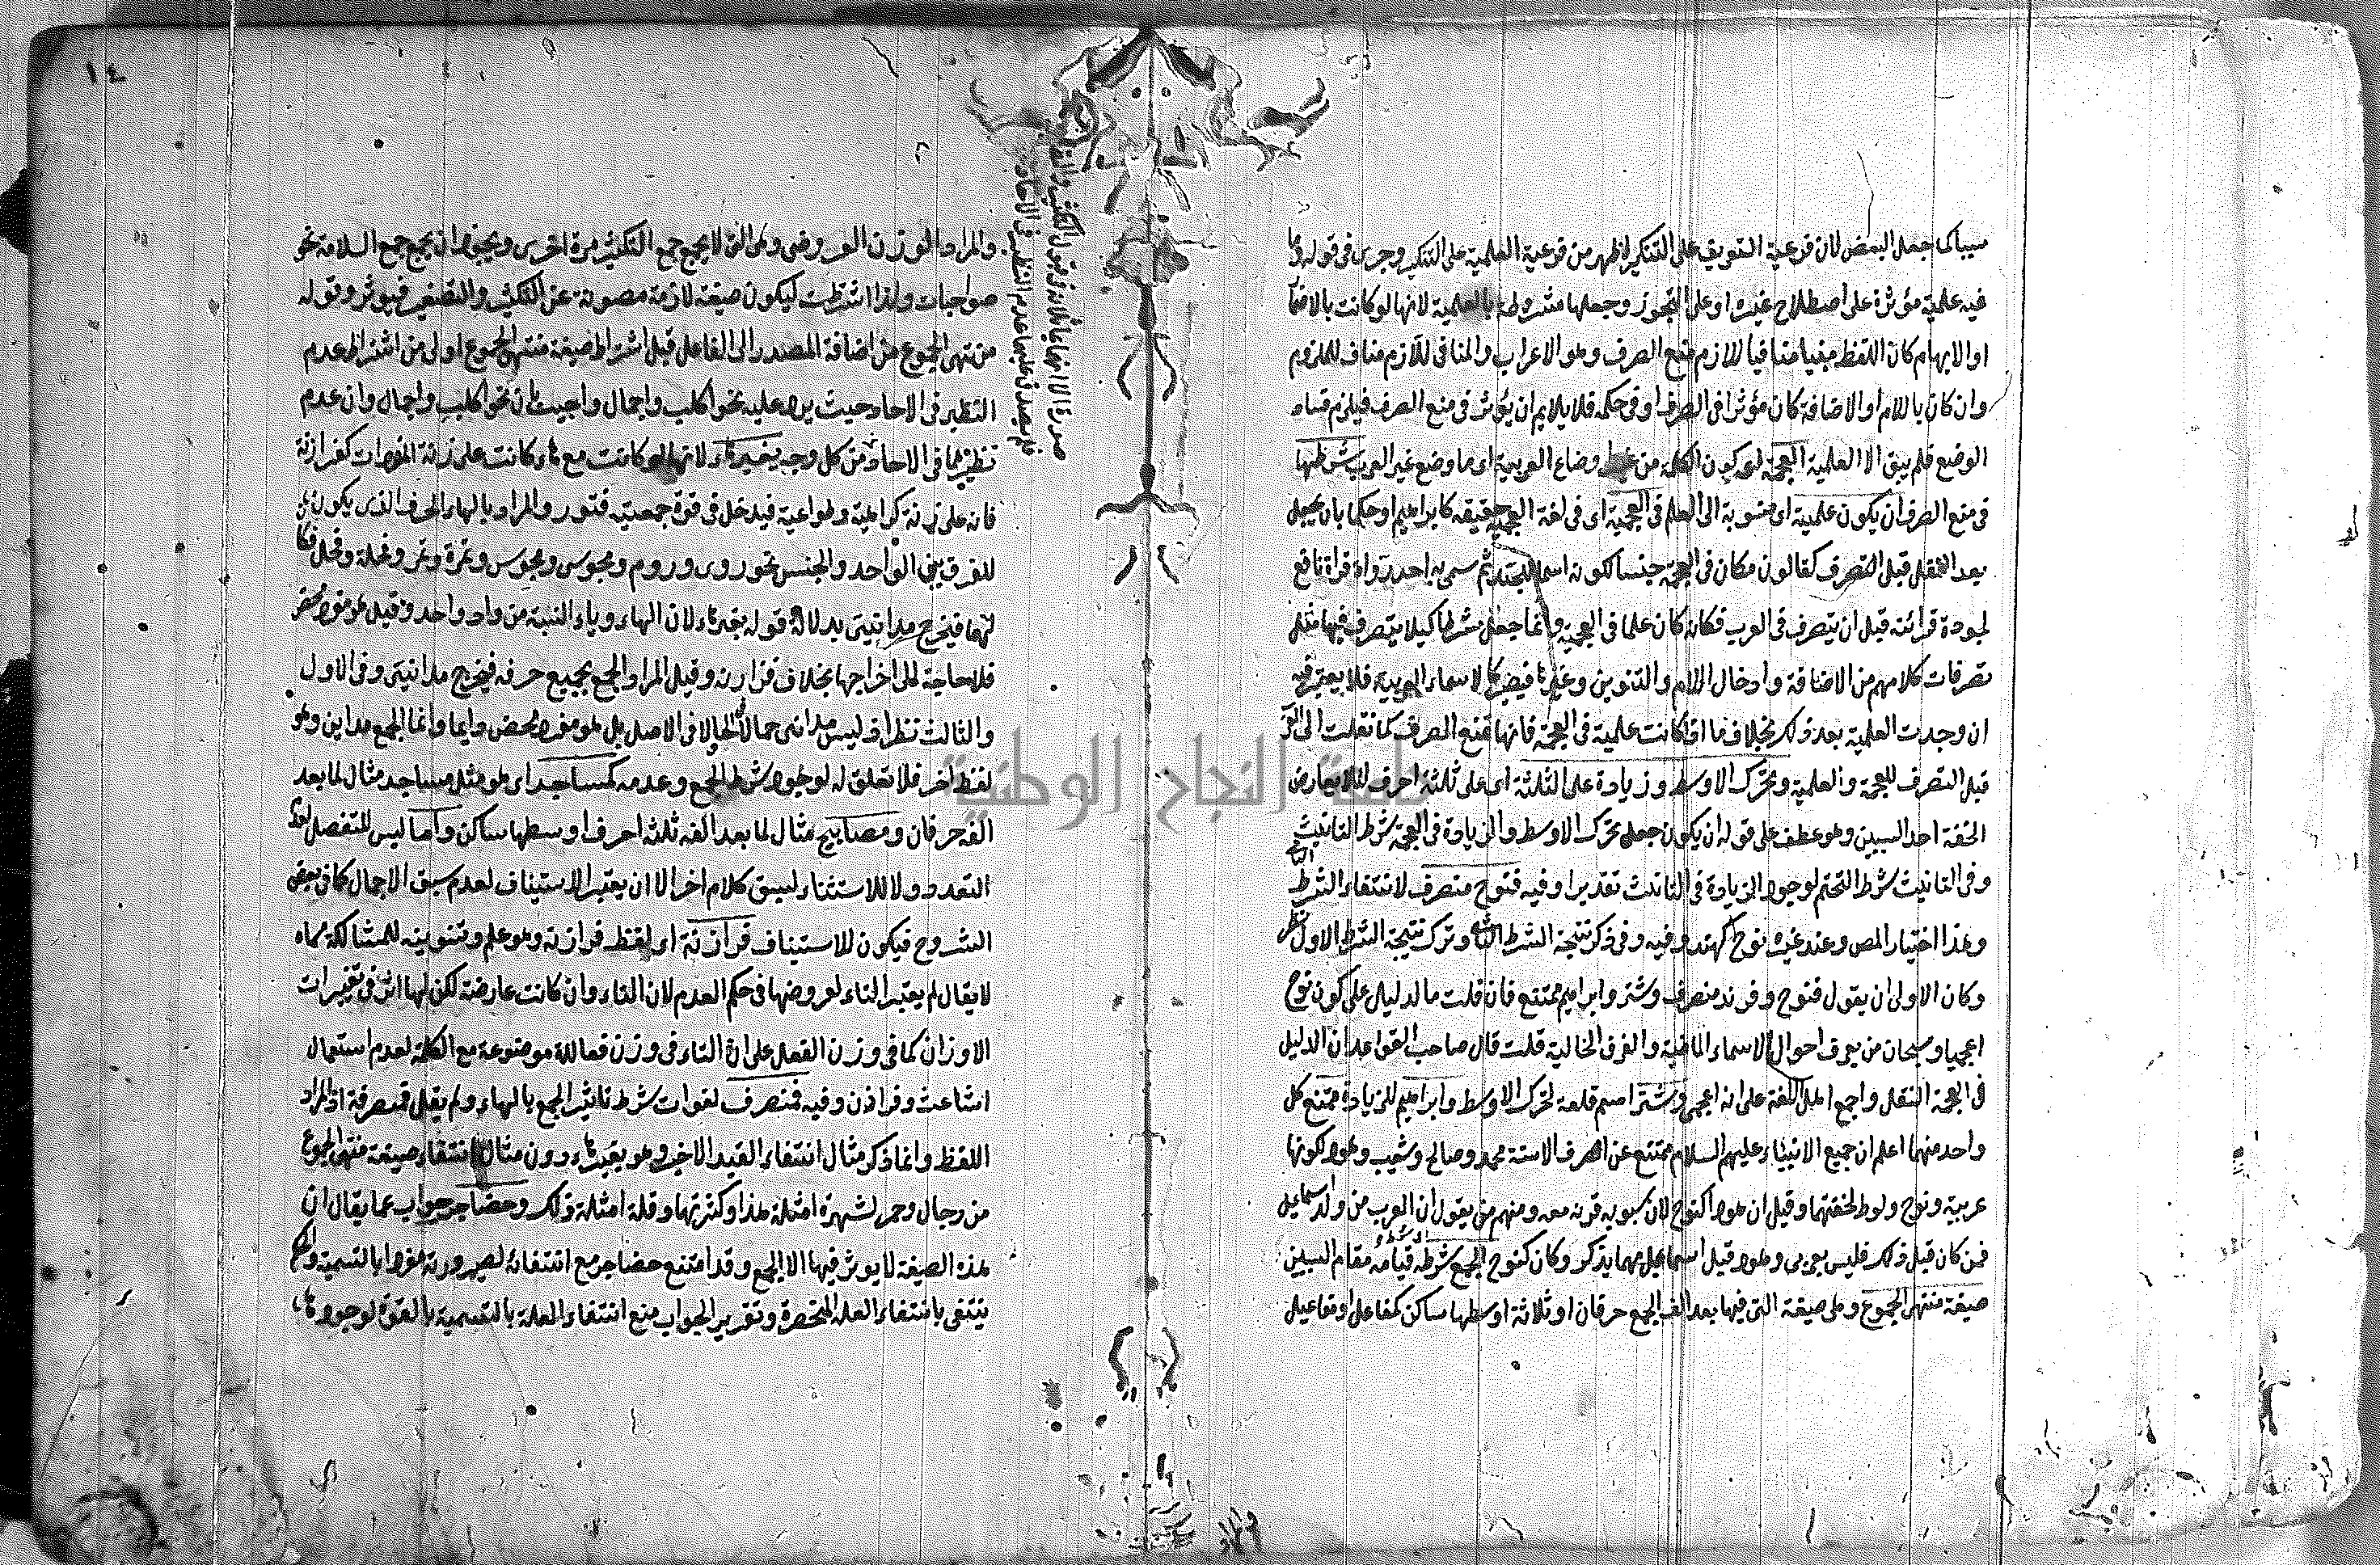 سببا كما جعل البعض لان فرعية التعريف على التنكير اظهر من فرعية العلمية على التنكير وجرى في قوله وما
فيه علمية مؤثرة على اصطلاح غيره او على التجوز وجعلها مشروطة بالعلمية لانها لو كانت بالاضا
او الابهام كان اللفظ مبنيا منافيا للازم منع الصرف وهو الاعراب والمنافي للازم مناف للملزوم
وان كان باللام او الاضافة كان مؤثرا في الصرف او في حكمه فلا يلايم ان يؤثر في منع الصرف فيلزم فساد
الوضع فلم يبق الا العلمية العجمة اي كون الكلمة من غير اوضاع العربية اي مما وضع غير العرب شرطها
في منع الصرف ان يكون علمية اي منسوبة الى العلم في العجمية اي في لغة العجمية حقيقة كابراهيم او حكما بان يجعل
بعد النقل قبل التصرف كقالون مكان في العجمة جنسا لكونه اسما للجيد ثم سمى به احد رواة قراءة نافع
لجودة قرائته قبل ان يتصرف في العرب فكانه كان علما في العجمة وانما جعل شرطا كيلا يتصرف فيها مثل
تصرفات كلامهم من الاضافة وادخال اللام والتنوين وغيرها فيضير كالاسماء العربية فلا يعتبر فيه
ان وجدت العلمية بعد ذلك بخلاف ما اذا كانت علمية في العجمة فانها تمنع الصرف كما نقلت الى
قبل التصرف للعجمة والعلمية وتحرك الاوسط وزيادة على الثلثة اي على ثلثة احرف لئلا يعارض
الخفة احد السببين وهو عطف على قوله ان يكون جملة تحرك الاوسط والزيادة في العجمة شرط التانيث
وفي التانيث شرط التحتم لوجود الزيادة في التانيث تقديرا وفيه فنوح منصرف لانتفاء الشرط
وهذا اختيار المص وعند غيره نوح كهند وفيه وفي ذكر نتيجة الشرط الثاني وترك نتيجة الشرط الاول نظر
وكان الاولى ان يقول فنوح وفرند منصرف وشتر وابراهيم ممتنع فان قلت ما الدليل على كون نوح
اعجميا وسبحان من يعرف احوال الاسماء الماضية والفرق الخالية قلت قال صاحب القواعد ان الدليل
في العجمة النقل واجمع اهل اللغة على انه اعجمي وشتر اسم قلعة لتحرك الاوسط وابراهيم للزيادة ممتنع كل
واحد منهما اعلم ان جميع الانبياء عليهم السلام ممتنع عن الصرف الا ستة محمد وصالح وشعيب وهود لكونها
عربية ونوح ولوط لخفتهما وقيل ان هودا كنوح لان سيبويه قرنه معه ومنهم من يقول ان العرب من ولد اسماعيل
فمن كان قبل ذلك فليس بعربي وهود قبل اسماعيل مهما يذكر وكان كنوح الجمع شرطه قيامه مقام السببين
صيغة منتهى الجموع وهي صيغة التي فيها بعد الف الجمع حرفان او ثلاثة اوسطها ساكن كمفاعل او مفاعيل
١٤
والمراد الوزن العروضي وهي التي لا يجمع جمع التكثير مرة اخرى ويجوز ان يجمع جمع السلامة نحو
صواحبات ولذا اشترطت ليكون صيغة لازمة مصونة عن التكثير والتصغير فيؤثر وقوله
من منتهى الجموع من اضافة المصدر الى الفاعل قيل اشتراط صيغة منتهى الجموع اولى من اشتراط عدم
النظير في الاحاد حيث يرد عليه نحو اكلب واجمال واجيب بان نحو اكلب واجمال وان عدم
نظيرهما في الاحاد من كل وجه بغير هاء لانها لو كانت مع هاء كانت على زنة المفردات كفرازنة
فانه على زنة كراهية وطواعية فيدخل في قوة جمعيته فتور والمراد بالهاء الحرف الذي يكون
للفرق بين الواحد والجنس نحو رومي وروم ومجوسي ومجوس وتمرة وتمر ونخلة ونخل
فيخرج مدايني بدلالة قوله بغير هاء لان الهاء وياء النسبة من واد واحد وقيل هو مفرد محض
فلا حاجة الى اخراجها بخلاف فرازنه وقيل المراد الجمع بجميع حرفه فيخرج مدايني وفي الاول
والثالث نظر اذ ليس مدايني جمعا لا في الحال ولا في الاصل بل هو مفرد محض وانما الجمع مداين وهو
لفظ اخر فلا تعلق له لوجود شرط الجمع وعدمه كمساجد اي هو مثل مساجد مثال لما بعد
الفه حرفان ومصابيح مثال لما بعد الفه ثلثة احرف اوسطها ساكن واما ليس للتفصيل
التعدد ولا للاستثناء لسبق كلام اخر الا ان يعتبر الاستيناف لعدم سبق الاجمال كما في بعض
الشروح فيكون للاستيناف فرازنة اي لفظ فرازنة وهو علم وتنوينه للمشاكلة
لا يقال لم يعتبر التاء لعروضها في حكم العدم لان التاء وان كانت عارضة لكن لها اثر في تغييرات
الاوزان كما في وزن الفعل على ان التاء في وزن فعاللة موضوعة مع الكلمة لعدم استعمال
اشاعث وفرازن وفيه فمنصرف لفوات شرط تاثير الجمع بالهاء ولم يقل فمنصرفة اذ المراد
اللفظ وانما ذكر مثال انتفاء القيد الاخير وهو بغير هاء دون مثال انتفاء صيغة منتهى الجموع
من رجال وحمر لشهرة امثلة هذا وكثرتها وقلة امثلة ذلك وحضاجر جواب عما يقال ان
هذه الصيغة لا يؤثر فيها الا الجمع وقد امتنع حضاجر مع انتفائه لصيرورته مفردا بالتسمية والحكم
ينتفي بانتفاء العلة المنحصرة وتقرير الجواب منع انتفاء العلة بالتسمية بالقوة لوجودها
صورة الا انهما ثلاثة فوقهما
فلم يصدق عليهما عدم النظير في الاحاد
والمراد
جامعة النجاح الوطنية